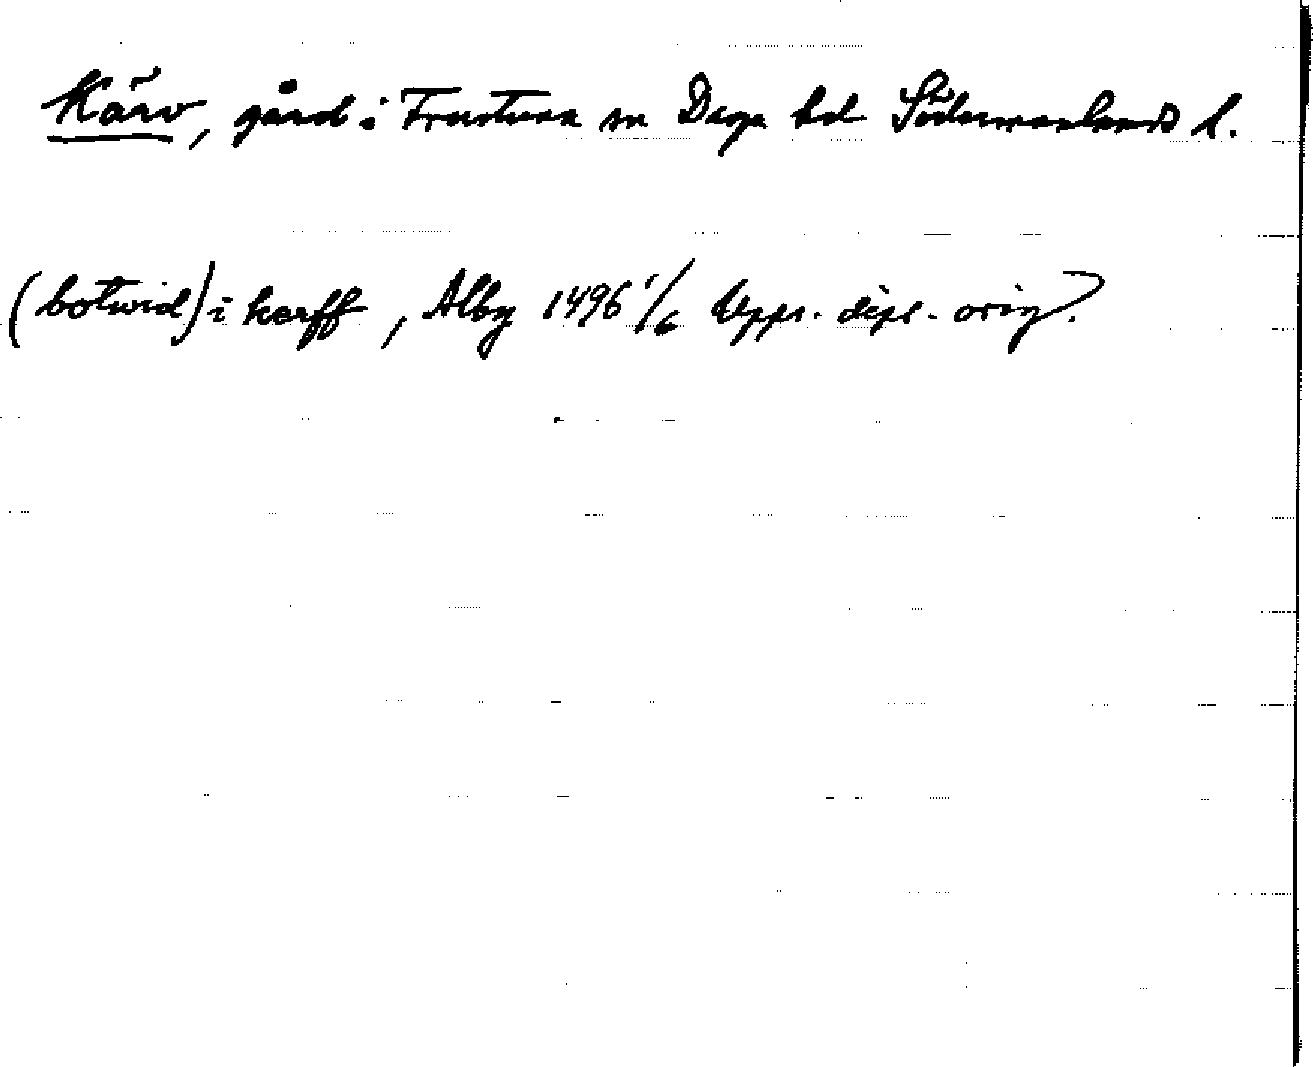 Kärv, gård i Frustuna sn Daga hd Södermanlands l.
(botwid) i karff, Alby 1496 1/6 Upps. dipl. orig.